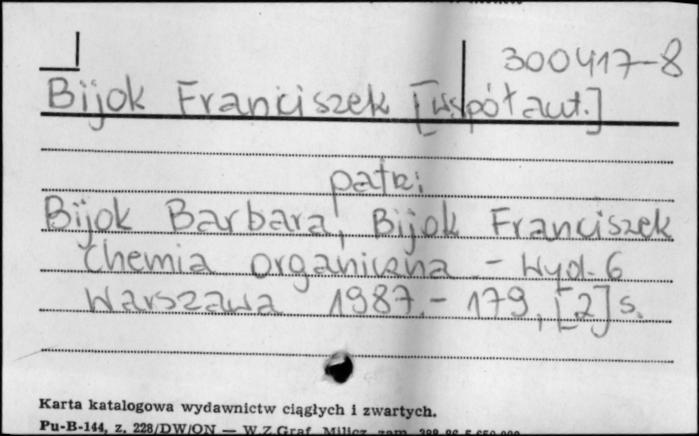 300417-8
Bijok Franciszek [współaut.]
patrz:
Bijok Barbara, Bijok Franciszek
Chemia organiczna .- Wyd. 6
Warszawa 1987.- 179, [2] s.
Karta katalogowa wydawnictw ciągłych i zwartych.
Pu-B-144, z. 228/DW/ON — W.Z.Graf. Milicz zam.